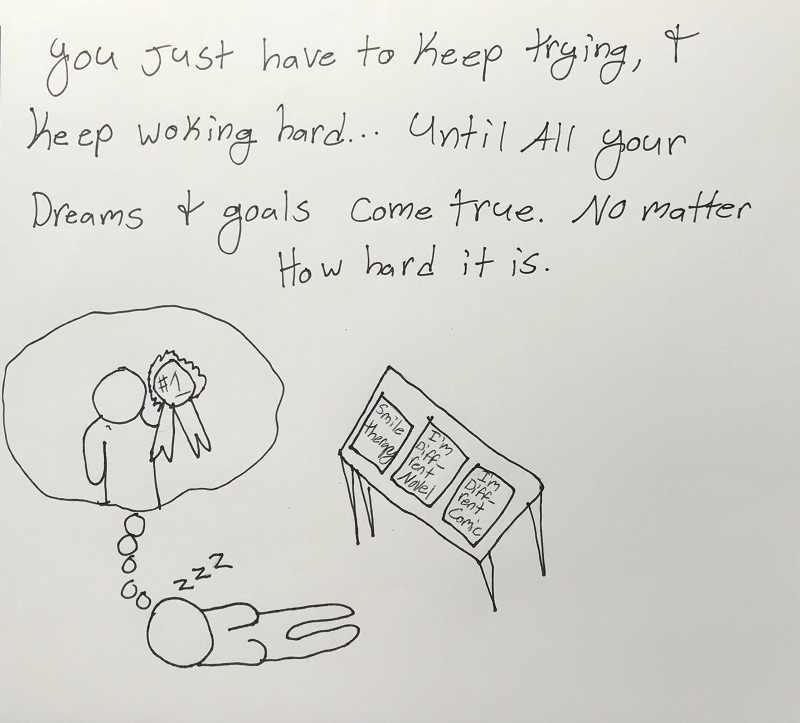 you just have to keep trying, &
keep woking hard... Until All your
Dreams & goals come true. No matter
How hard it is.
#1
Smile
therapy
I'm
Diff-
rent
Novel
I'm
Diff-
rent
Comic
zzz